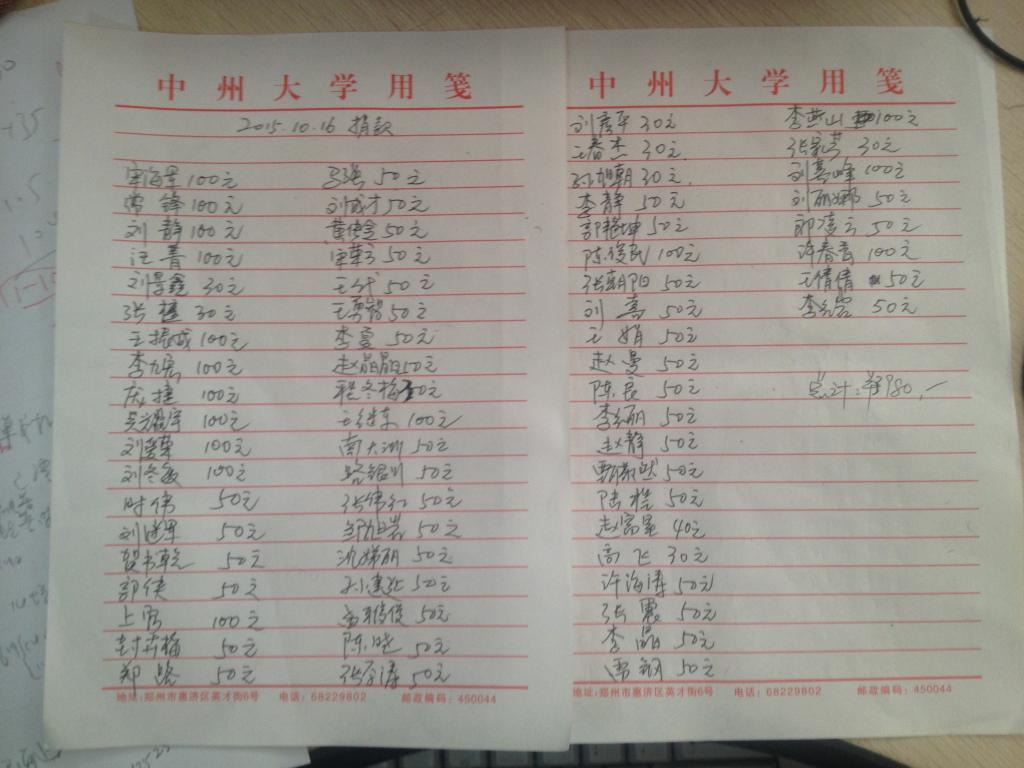 中州大学用笺
2015.10.16 捐款
100元 马强 50元
常锋 100元 刘成才 50元
刘静 100元 50元
汪菁 100元 50元
刘景鑫 30元 王代 50元
张楂 30元 王勇智 50元
王振成 100元 李夏 50元
李九宏 100元 赵晶晶 50元
庆捷 100元 程冬梅 50元
100元 王继东 100元
刘爱荣 100元 南大洲 50元
刘冬敏 100元 路银川 50元
时伟 50元 张伟红 50元
刘进军 50元 邹旭岩 50元
贺书乾 50元 沈娣丽 50元
郭侠 50元 孙建延 50元
上官 100元 50元
封卉梅 50元 陈晓 50元
郑路 50元 张 涛 50元
地址:郑州市惠济区英才街6号 电话:68229802 邮政编码:450044
中州大学用笺
刘彦平 30元 李燕山 100元
王春杰 30元 张家芳 30元
孙旭朝 30元 刘嵩峰 100元
李静 50元 刘丽娜 50元
郭艳坤 50元 郎凌云 50元
陈俊民 100元 许春香 100元
张朝阳 50元 王倩倩 50元
刘嵩 50元 李 50元
王娟 50元
赵曼 50元
陈良 50元 总计:
李红丽 50元
赵静 50元
50元
陆桂 50元
赵富星 40元
高飞 30元
许海涛 50元
张震 50元
李晶 50元
雷钢 50元
地址:郑州市惠济区英才街6号 电话:68229802 邮政编码:450044